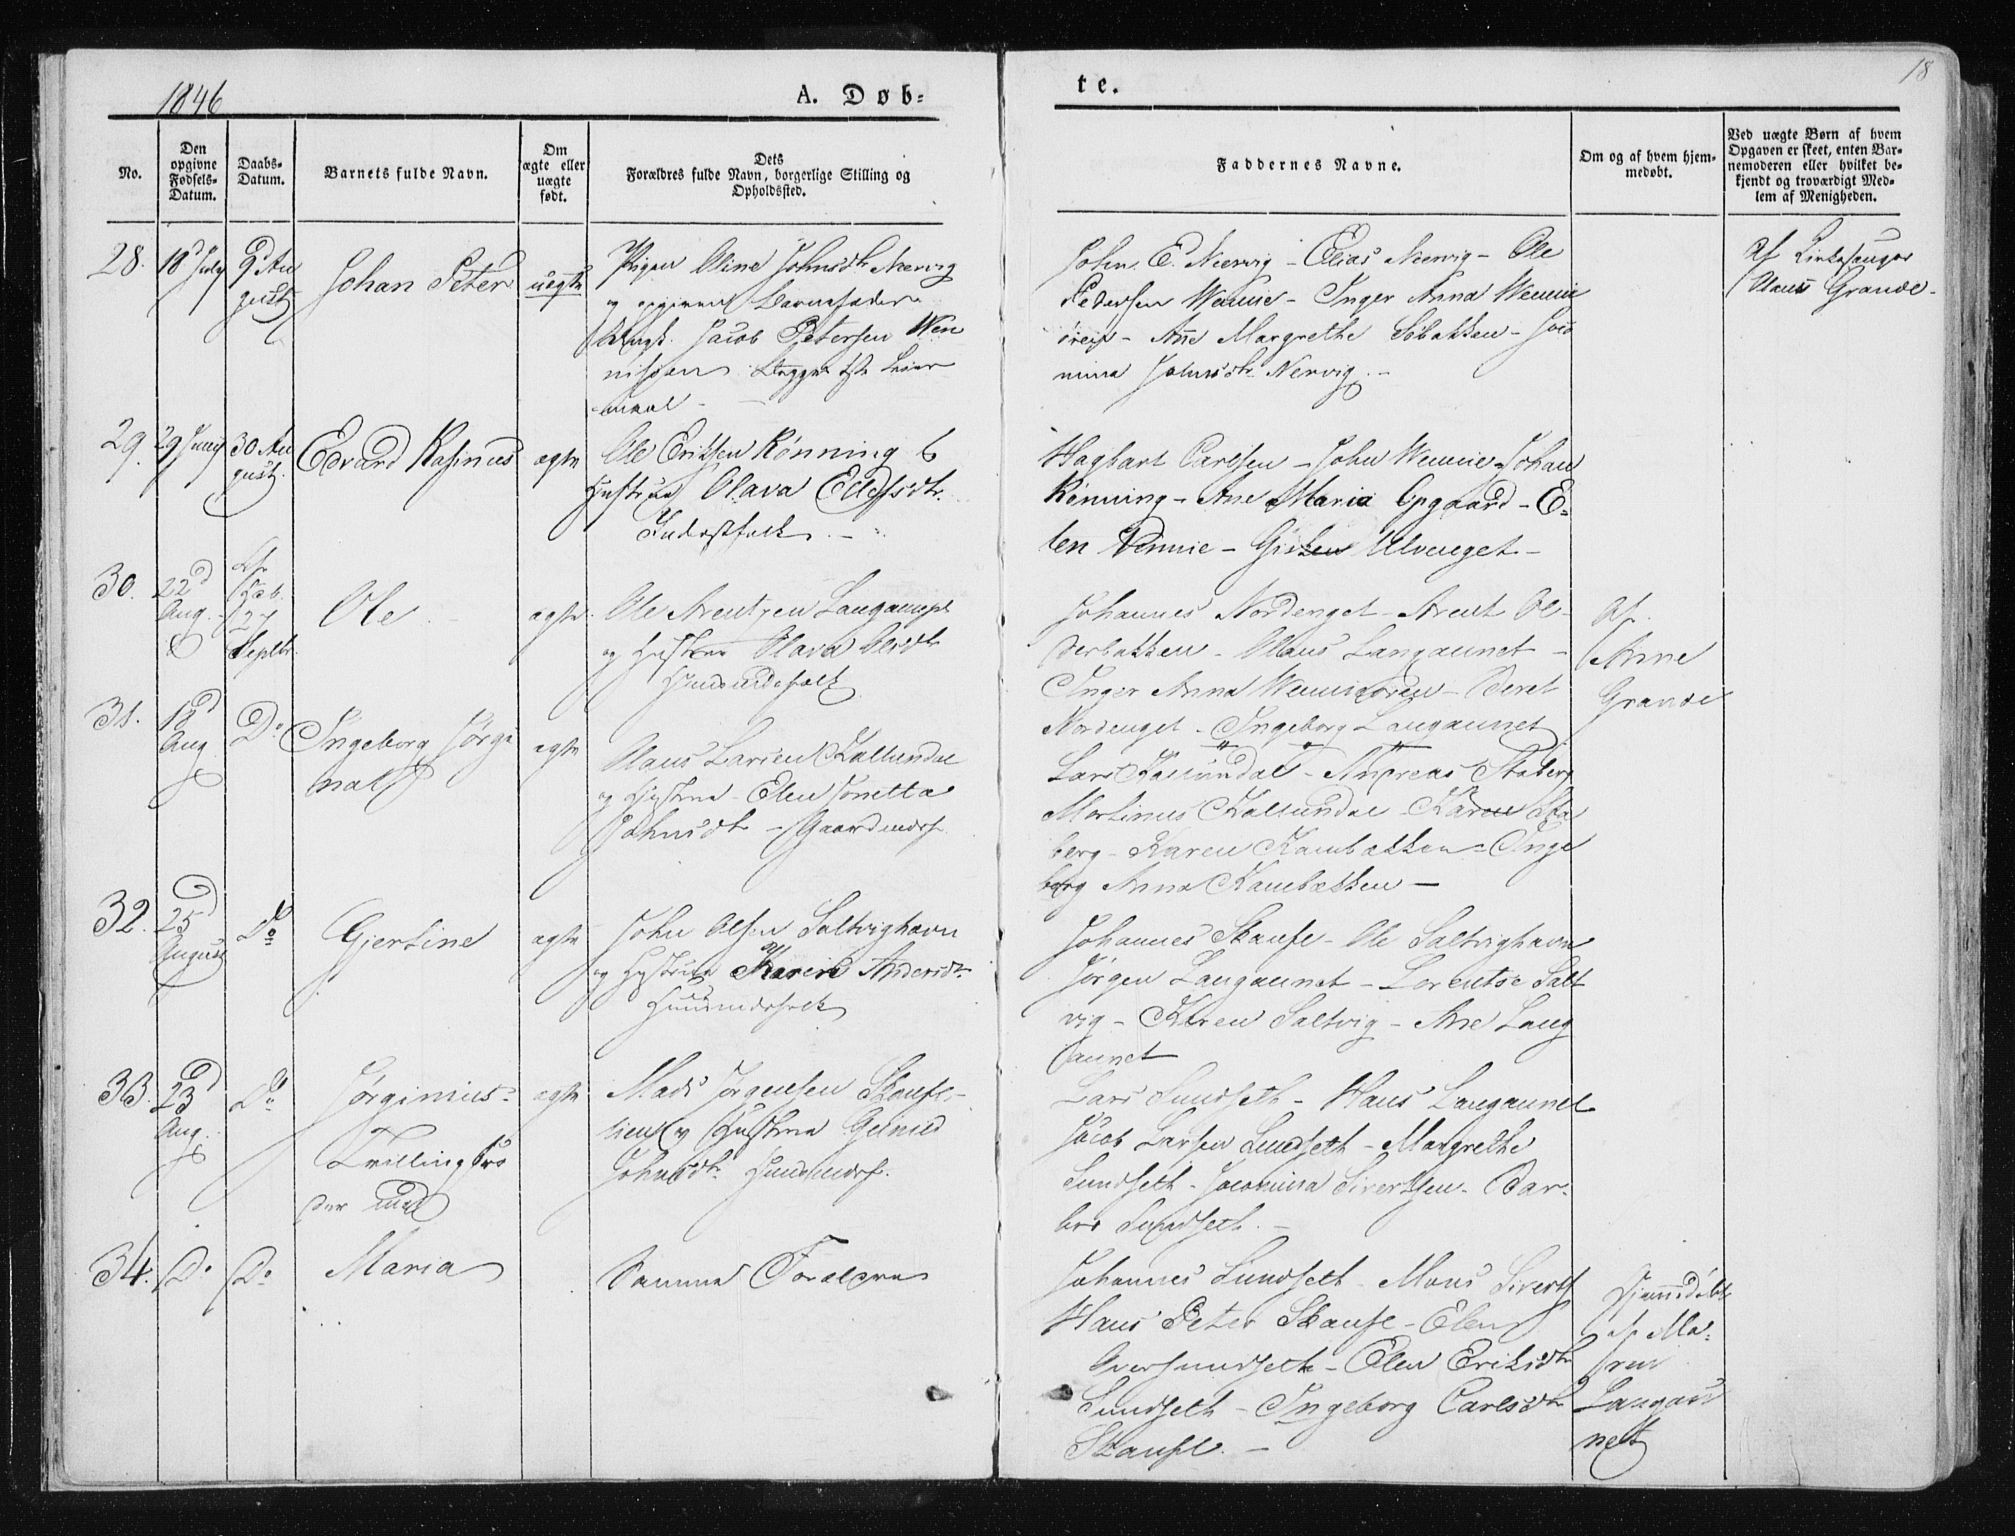 1846
A. Døb=
te.
18
No.
Den opgivne Fødsels-Datum.
Daabs-Datum.
Barnets fulde Navn.
Om ægte eller uægte født.
Dets
Forældres fulde Navn, borgerlige Stilling og
Opholdssted.
Faddernes Navne.
Om og af hvem hjem-
medøbt.
Ved uægte Børn af hvem
Opgaven er skeet, enten Bar-
nemoderen eller hvilket be-
kjendt og troværdigt Med-
lem af Menigheden.
28. 18 July 9 Au
gust
Johan Peter
uægte
Pigen Oline Johnsdtr Nervig
og opgiven Barnefader
Ungk. Jacob Petersen Wen
Begges 1ste Leier
maal -
John E. Nervig - Elias Nervig - Ole
Pedersen Wennie - Inger Anna Wennie
- Ane Margrethe Søbakken - Jaco
mina Johnsdtr Nervig. -
Af Kirkesanger
Claus Grande -
29. 30 Au
gust.
Edvard Rasinus
ægte
Ole Eriksen Rønning &
Hustrue Olava
Inderstfolk. -
Hagbart Carlsen - John Wennie - Johan
Rønning - Ane Maria Opgaard - E=
len Vennie - Ulvenget -
30. 22d
Aug.
27
Septbr.
Ole
ægte
Ole Arentzen Langaunet
og Hustrue Olava Olsdtr
Huusmdsfolk
Johannes Nordenget - Arent Ol-
derbakken - Claus Langaunet -
Inger Anna Wennieøren - Beret
Nordenget - Ingeborg Langaunet
Af
Anne
Grande
31. 18d
Aug
Do
Ingeborg Jørgi
na
ægte
Claus Larsen Kallundal
og Hustrue - Elen Jonetta
Johnsdtr - Gaardmdsf.
Lars Kallundal - Andreas Staberg
Martinus Kallundal - Karen Sta
berg - Karen Kambakken - Inge
borg Anna Kambakken -
32. 25
August
Do
Gjertine
ægte
John Olsen Saltvighavn
og Hustrue Karen Andersdtr
Huusmdsfolk
Johannes Skaufe - Ole Saltvighavn
Jørgen Langaunet - Lorentse Salt
vig - Karen Saltvig - Ane Lang
aunet
33. 23d
Aug.
Do
Jørginius -
Tvillingbro
der med
ægte
Mads Jørgensen Skaufe-
lien og Hustrue
Johnsdtr. Huusmdsf.
Lars Sundseth - Hans Langaunet
Jacob Larsen Sundseth - Margrethe
Sundseth - Jacomina Sivertsen - Bar-
bro Sundseth. -
34. Do Do
Maria
Samme Forældre
Johannes Sundseth - Mons Siverts
Hans Peter Skaufe - Elen
Oversundseth - Elen Eriksdtr
Sundseth - Ingeborg Carlsdtr
Skaufe. -
Hjemmedøbt
af Ma=
ren
Langau
net